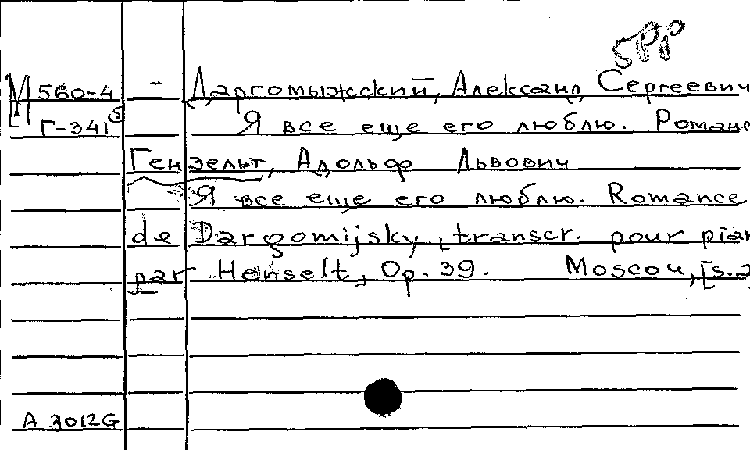 5РР
М 560-4 - Даргомыжский, Александ, Сергеевич
Г-341 3 Я все еще его люблю. Романс
Гензельт, Адольф Львович
Я все еще его люблю. Romance
de Dargomijsky, transcr. pour pian
par Henselt, Op. 39. Moscou, [s.a
А 3012G